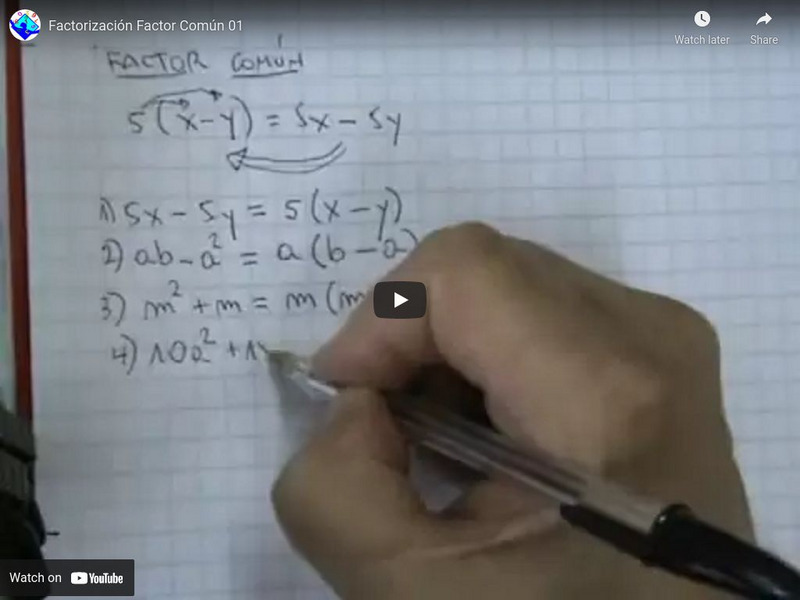 Factorización Factor Común 01
Watch later
Share
FACTOR COMÚN
5(x-y) = 5x - 5y
1) 5x - 5y = 5(x-y)
2) ab - a² = a(b-a)
3) m² + m = m(m
4) 10a² + 1
Watch on YouTube